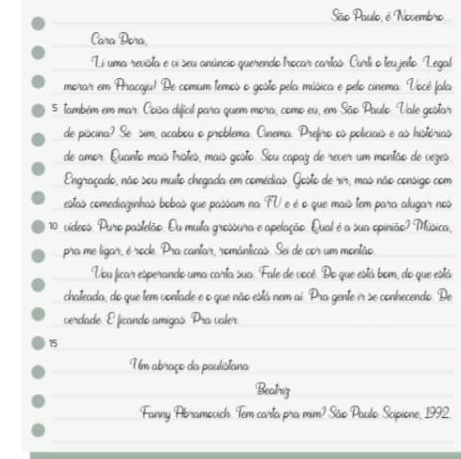 São Paulo, é Novembro...
Cara Dora,
Li uma revista e vi seu anúncio querendo trocar cartas. Curti o teu jeito. Legal
morar em Aracaju! De comum temos o gosto pela música e pelo cinema. Você fala
5 também em mar. Coisa difícil para quem mora, como eu, em São Paulo. Vale gostar
de piscina? Se sim, acabou o problema. Cinema. Prefiro os policiais e as histórias
de amor. Quanto mais tristes, mais gosto. Sou capaz de rever um montão de vezes.
Engraçado, não sou muito chegada em comédias. Gosto de rir, mas não consigo com
estas comediazinhas bobas que passam na TV e é o que mais tem para alugar nos
10 vídeos. Puro pastelão. Ou muita grossura e apelação. Qual é a sua opinião? Música,
pra me ligar, é rock. Pra cantar, românticas. Sei de cor um montão.
Vou ficar esperando uma carta sua. Fale de você. Do que está bom, do que está
chateada, do que tem vontade e o que não está nem aí. Pra gente ir se conhecendo. De
verdade. E ficando amigas. Pra valer.
15
Um abraço da paulistana
Beatriz
Fanny Abramovich. Tem carta pra mim? São Paulo: Scipione, 1992.